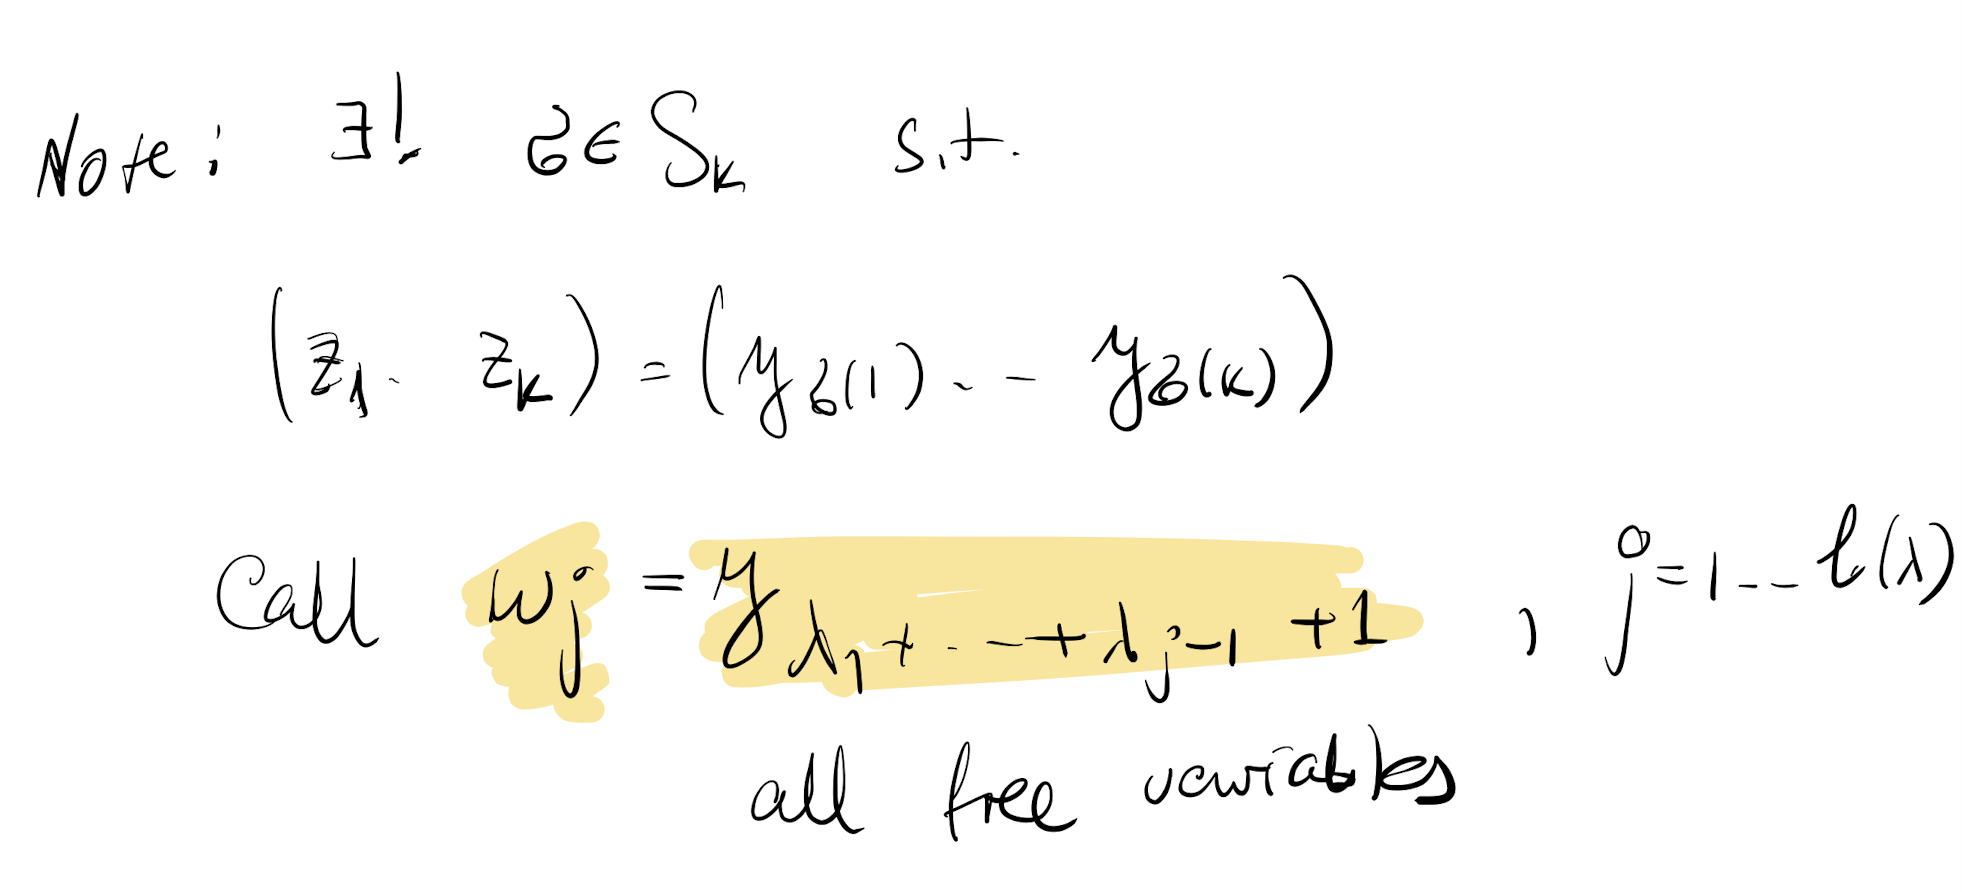 Note: ∃! σ ∈ S_k s.t.
(z_1 .. z_k) = (y_σ(1) ... y_σ(k))
Call w_j = y_{λ_1 + ... + λ_{j-1} + 1} , j = 1 ... ℓ(λ)
all free variables